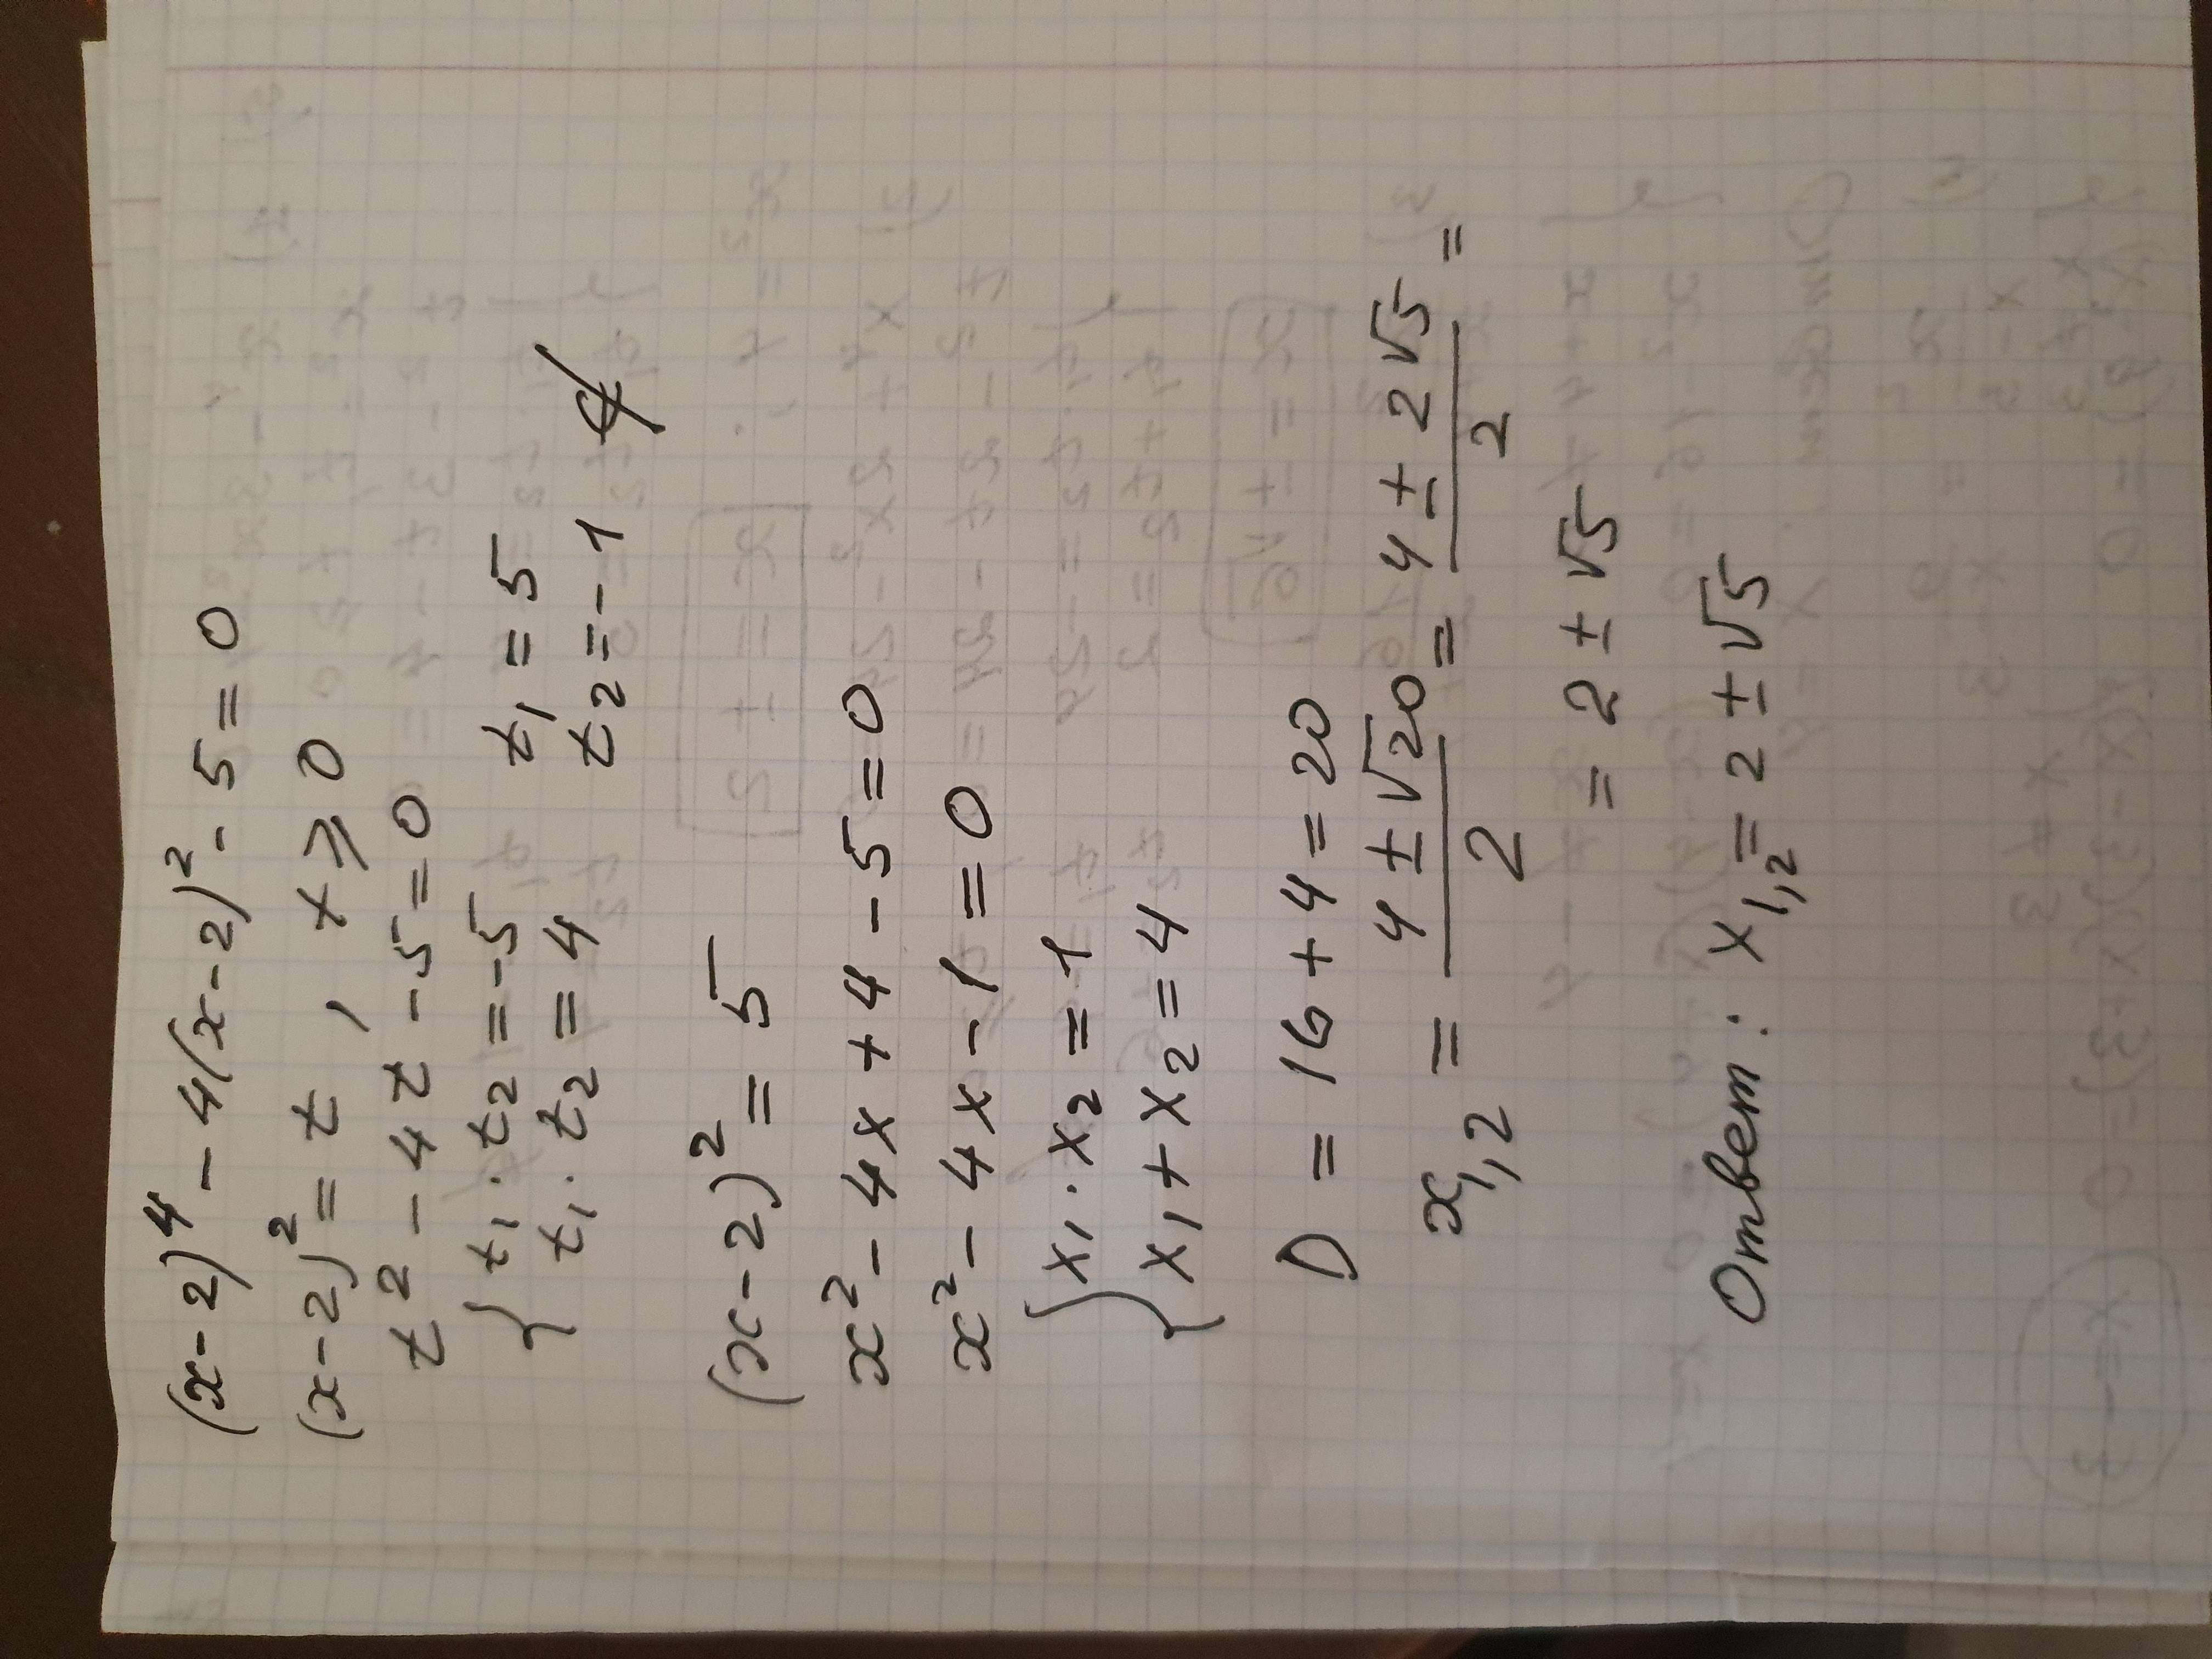 (x-2)⁴ - 4(x-2)² - 5 = 0
(x-2)² = t , t ⩾ 0
t² - 4t - 5 = 0
{ t₁ · t₂ = -5 t₁ = 5
t₁ · t₂ = 4 t₂ = -1 ∉
(x-2)² = 5
x² - 4x + 4 - 5 = 0
x² - 4x - 1 = 0
{ x₁ · x₂ = 1
x₁ + x₂ = 4
D = 16 + 4 = 20
x₁,₂ = (4 ± √20)/2 = (4 ± 2√5)/2 =
= 2 ± √5
Ответ: x₁,₂ = 2 ± √5